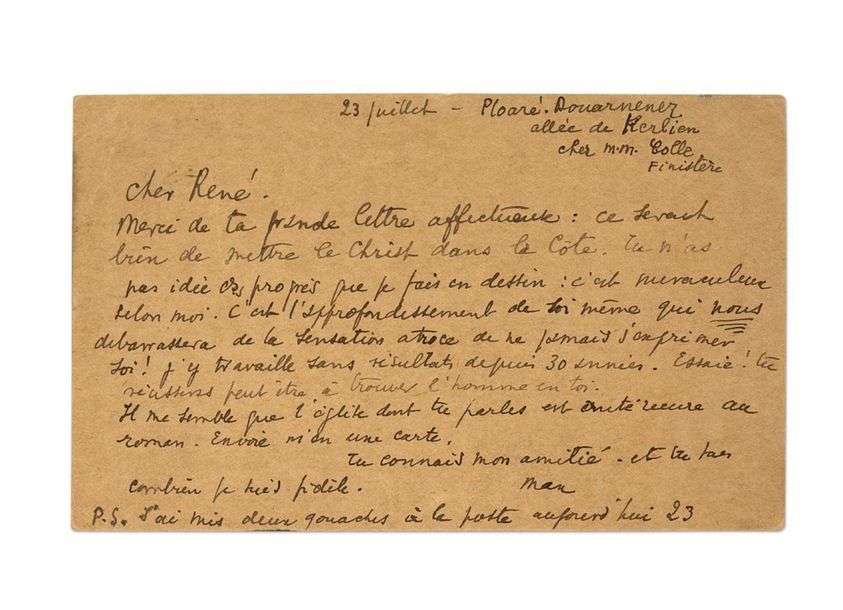 23 juillet - Ploaré. Douarnenez
allée de Kerlien
chez M.M. Colle
Finistère
cher René.
Merci de ta grande lettre affectueuse : ce serait
bien de mettre le Christ dans la Côte. Tu n'as
pas idée des progrès que je fais en dessin : c'est miraculeux
selon moi. C'est l'approfondissement de soi même qui nous
débarrassera de la sensation atroce de ne jamais s'exprimer
soi! j'y travaille sans résultats depuis 30 années. Essaie! tu
réussiras peut être à trouver l'homme en toi.
Il me semble que l'église dont tu parles est antérieure au
roman. Envoie m'en une carte.
Tu connais mon amitié - et tu sais
combien je suis fidèle.
Max
P.S. J'ai mis deux gouaches à la poste aujourd'hui 23